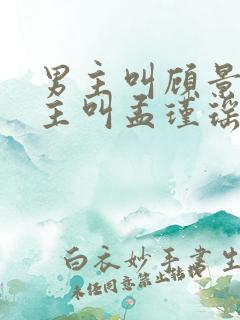 男主叫顾景
主叫孟瑾瑶
白衣妙手书生
未经同意禁止转载